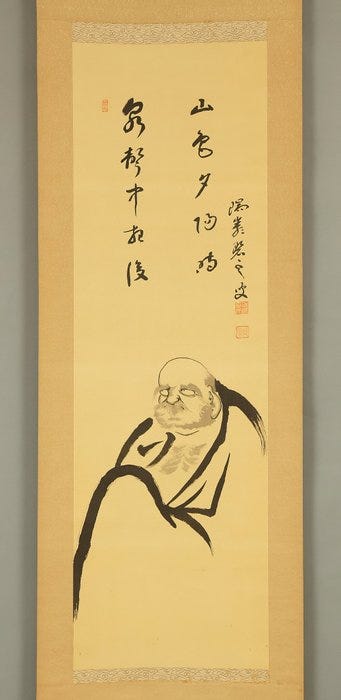 泉聲中夜後
山色夕陽時